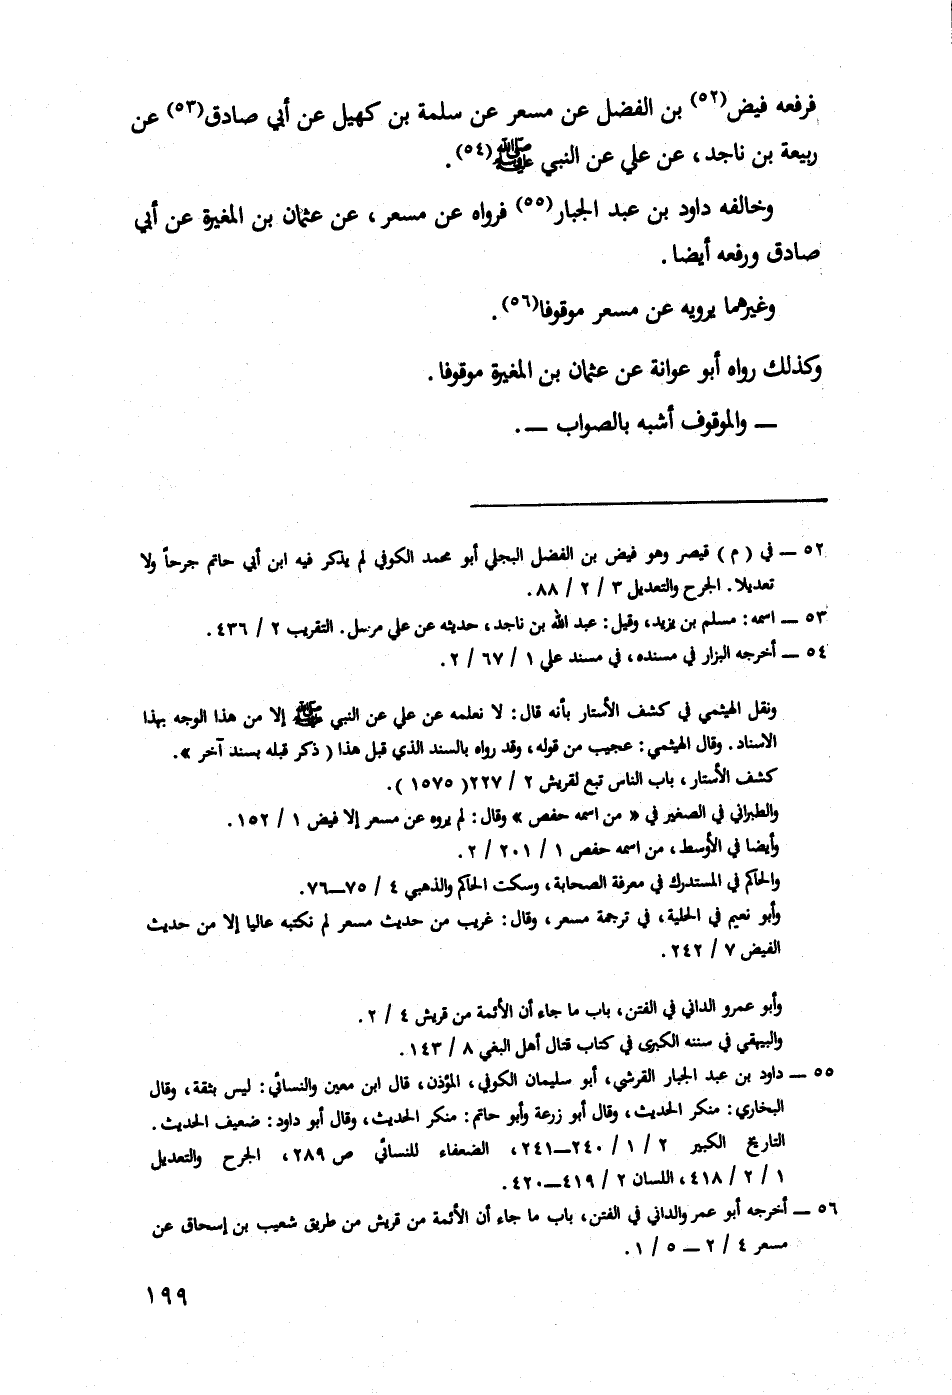 فرفعه فيض(٥٢) بن الفضل عن مسعر عن سلمة بن كهيل عن أبي صادق(٥٣) عن
ربيعة بن ناجد، عن علي عن النبي ﷺ(٥٤).
وخالفه داود بن عبد الجبار(٥٥) فرواه عن مسعر، عن عثمان بن المغيرة عن أبي
صادق ورفعه أيضا.
وغيرهما يرويه عن مسعر موقوفا(٥٦).
وكذلك رواه أبو عوانة عن عثمان بن المغيرة موقوفا.
— والموقوف أشبه بالصواب —.
٥٢ — في ( م ) قيصر وهو فيض بن الفضل البجلي أبو محمد الكوفي لم يذكر فيه ابن أبي حاتم جرحاً ولا
تعديلا. الجرح والتعديل ٣ / ٢ / ٨٨.
٥٣ — اسمه: مسلم بن يزيد، وقيل: عبد الله بن ناجد، حديثه عن علي مرسل. التقريب ٢ / ٤٣٦.
٥٤ — أخرجه البزار في مسنده، في مسند علي ١ / ٦٧ / ٢.
ونقل الهيثمي في كشف الأستار بأنه قال: لا نعلمه عن علي عن النبي ﷺ إلا من هذا الوجه بهذا
الاسناد. وقال الهيثمي: عجيب من قوله، وقد رواه بالسند الذي قبل هذا ( ذكر قبله بسند آخر ».
كشف الأستار، باب الناس تبع لقريش ٢ / ٢٢٧( ١٥٧٥ ).
والطبراني في الصغير في « من اسمه حفص » وقال: لم يروه عن مسعر إلا فيض ١ / ١٥٢.
وأيضا في الأوسط، من اسمه حفص ١ / ٢٠١ / ٢.
والحاكم في المستدرك في معرفة الصحابة، وسكت الحاكم والذهبي ٤ / ٧٥—٧٦.
وأبو نعيم في الحلية، في ترجمة مسعر، وقال: غريب من حديث مسعر لم نكتبه عاليا إلا من حديث
الفيض ٧ / ٢٤٢.
وأبو عمرو الداني في الفتن، باب ما جاء أن الأئمة من قريش ٤ / ٢.
والبيهقي في سننه الكبرى في كتاب قتال أهل البغي ٨ / ١٤٣.
٥٥ — داود بن عبد الجبار القرشي، أبو سليمان الكوفي، المؤذن، قال ابن معين والنسائي: ليس بثقة، وقال
البخاري: منكر الحديث، وقال أبو زرعة وأبو حاتم: منكر الحديث، وقال أبو داود: ضعيف الحديث.
التاريخ الكبير ٢ / ١ / ٢٤٠—٢٤١، الضعفاء للنسائي ص ٢٨٩، الجرح والتعديل
١ / ٢ / ٤١٨، اللسان ٢ / ٤١٩—٤٢٠.
٥٦ — أخرجه أبو عمر والداني في الفتن، باب ما جاء أن الأئمة من قريش من طريق شعيب بن إسحاق عن
مسعر ٤ / ٢ — ٥ / ١.
١٩٩